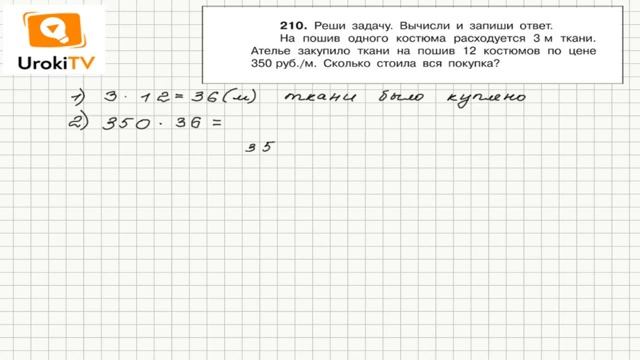 UrokiTV
210. Реши задачу. Вычисли и запиши ответ.
На пошив одного костюма расходуется 3 м ткани.
Ателье закупило ткани на пошив 12 костюмов по цене
350 руб./м. Сколько стоила вся покупка?
1) 3 · 12 = 36 (м) ткани было куплено
2) 350 · 36 =
35